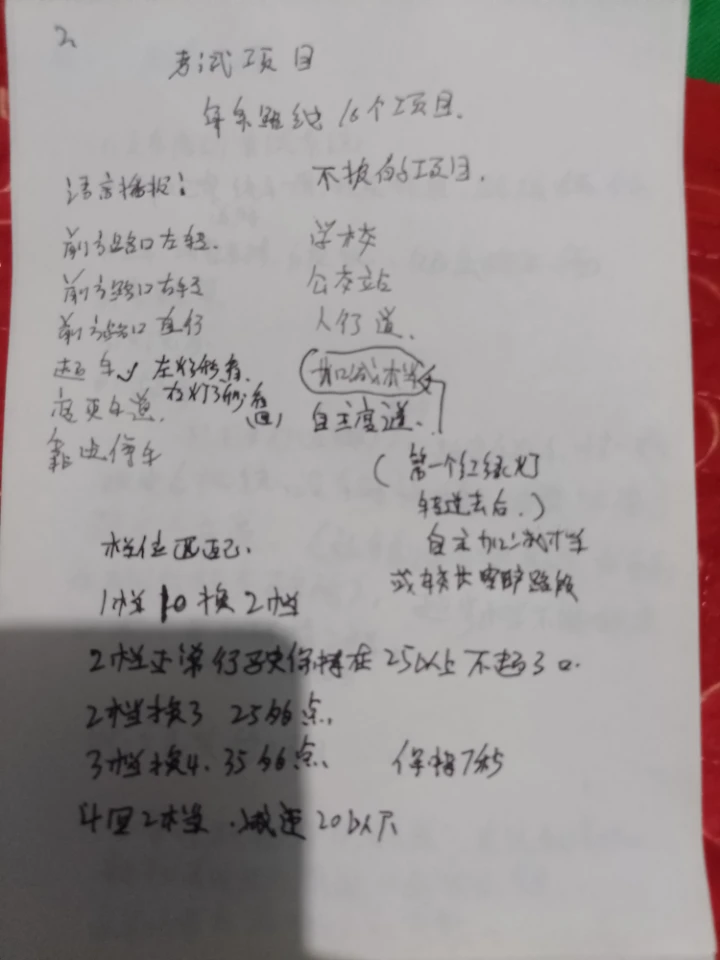 2
考试项目
每条路线16个项目.
语言播报:
前方路口左转.
前方路口右转
前方路口直行
超车 左灯3秒看.
变更车道. 右灯3秒看(回)
靠边停车
不报的项目.
学校
公交站
人行道.
加减档
自主变道.
(第一个红绿灯
转过去后.)
自主加减档
或较长空旷路段
档位匹配.
1档10换2档
2档正常行驶保持在25以上不超30.
2档换3 25的点.
3档换4. 35的点. 保持7秒
4回2档.减速20以下